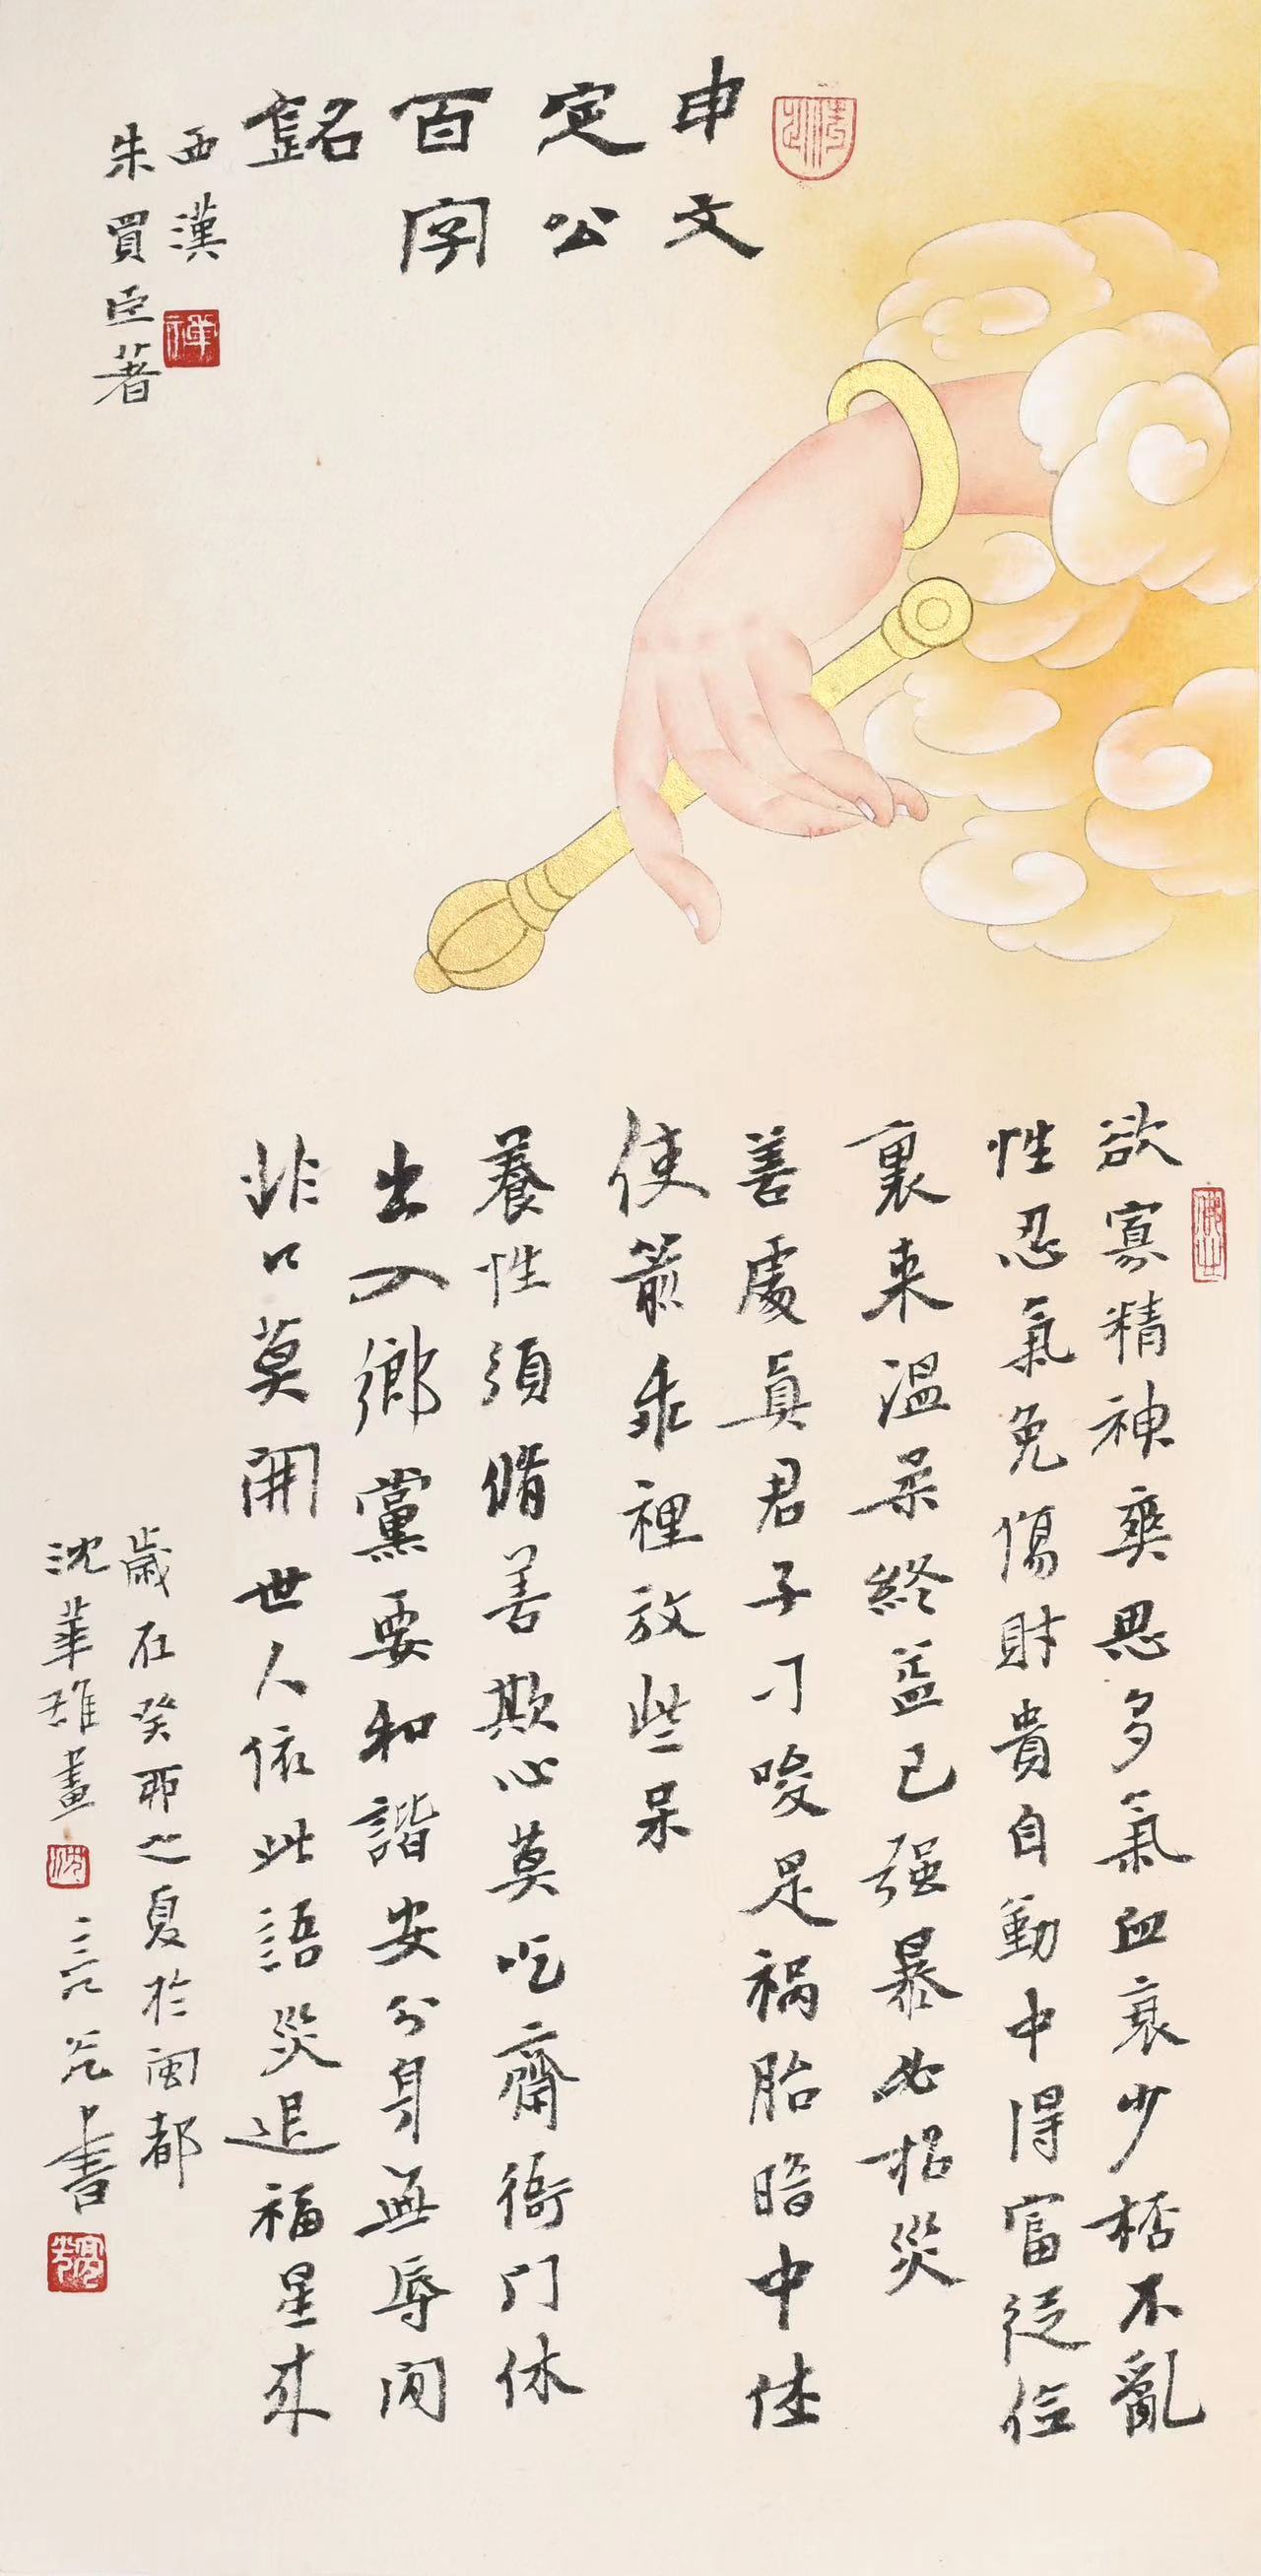 申文
定公
百字
銘
西漢
朱買臣著
欲寡精神爽思多氣血衰少桮不亂
性忍氣免傷財貴自勤中得富從儉
裏来溫柔終益己强暴必招災
善處真君子刁唆是祸胎暗中休
使箭乖裡放些呆
養性須脩善欺心莫吃齋衙门休
出入鄉黨要和諧安分身無辱闲
非口莫開世人依此語災退福星来
歲在癸卯之夏於闽都
沈華雄畫
書